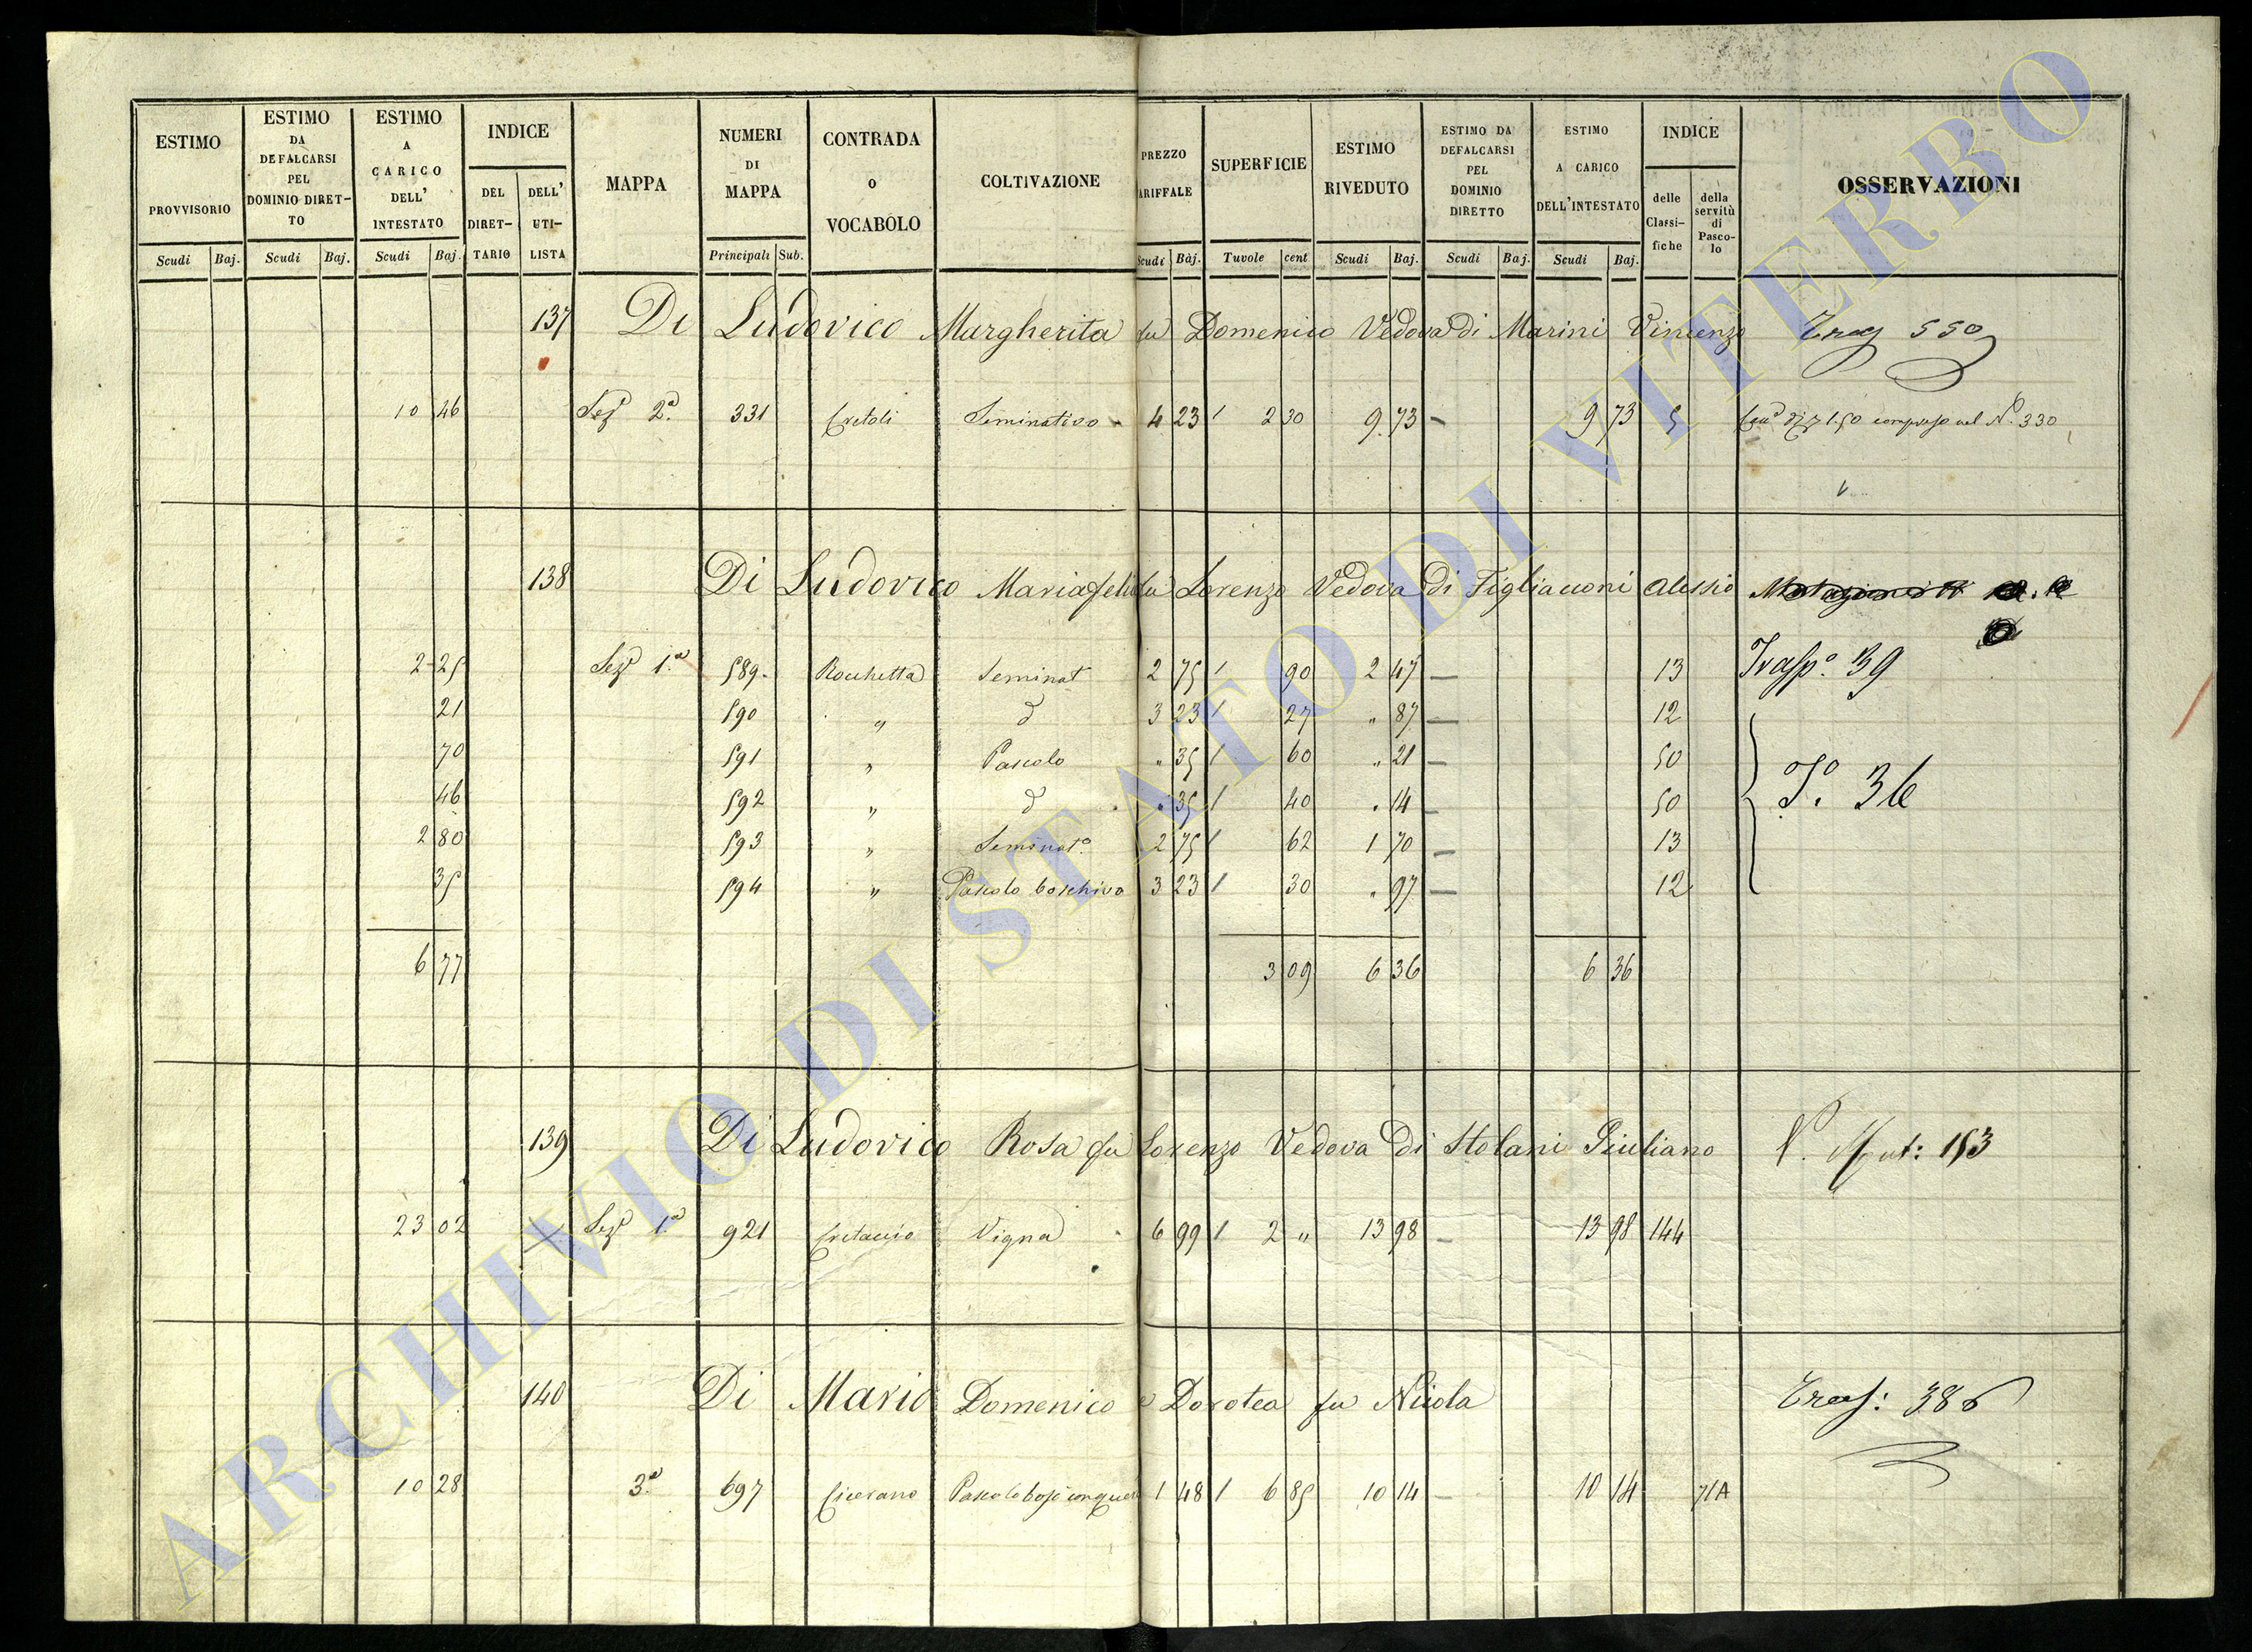 ESTIMO PROVVISORIO Scudi Baj. ESTIMO DA DEFALCARSI PEL DOMINIO DIRETTO Scudi Baj. ESTIMO A CARICO DELL' INTESTATO Scudi Baj. INDICE DEL DIRETTARIO DELL' UTILISTA MAPPA NUMERI DI MAPPA Principali Sub. CONTRADA o VOCABOLO COLTIVAZIONE PREZZO TARIFFALE Scudi Baj. SUPERFICIE Tavole cent ESTIMO RIVEDUTO Scudi Baj. ESTIMO DA DEFALCARSI PEL DOMINIO DIRETTO Scudi Baj. ESTIMO A CARICO DELL'INTESTATO Scudi Baj. INDICE delle Classifiche della servitù di Pascolo OSSERVAZIONI
137 Di Ludovico Margherita fu Domenico Vedova di Marini Vincenzo 550
10 46 Sezᵉ 2ª 331 Cretoli Seminativo 4 23 / 2 30 9 73 — 9 73 5 compreso nel Nº 330
138 Di Ludovico Mariafelice fu Lorenzo Vedova di Figliacconi Alessio
2 25 Sezᵉ 1ª 589 Rocchetta Seminat 2 75 / 90 2 47 — 13 Traspº 39
21 590 " d 3 23 / 27 " 87 — 12
70 591 " Pascolo " 35 / 60 " 21 — 50
46 592 " d " 35 / 40 " 14 — 50 Tº 36
2 80 593 " Seminatº 2 75 / 62 1 70 — 13
35 594 " Pascolo boschivo 3 23 / 30 " 97 — 12
6 77 3 09 6 36 6 36
139 Di Ludovico Rosa fu Lorenzo Vedova Di Stolani Giuliano 153
23 02 Sezᵉ 1ª 921 Cretaccio Vigna 6 99 / 2 " 13 98 — 13 98 144
140 Di Mario Domenico e Dorotea fu Nicola Trasp: 386
10 28 3ª 697 Cicerano Pascolo 1 48 / 6 85 10 14 — 10 14 71A
ARCHIVIO DI STATO DI VITERBO